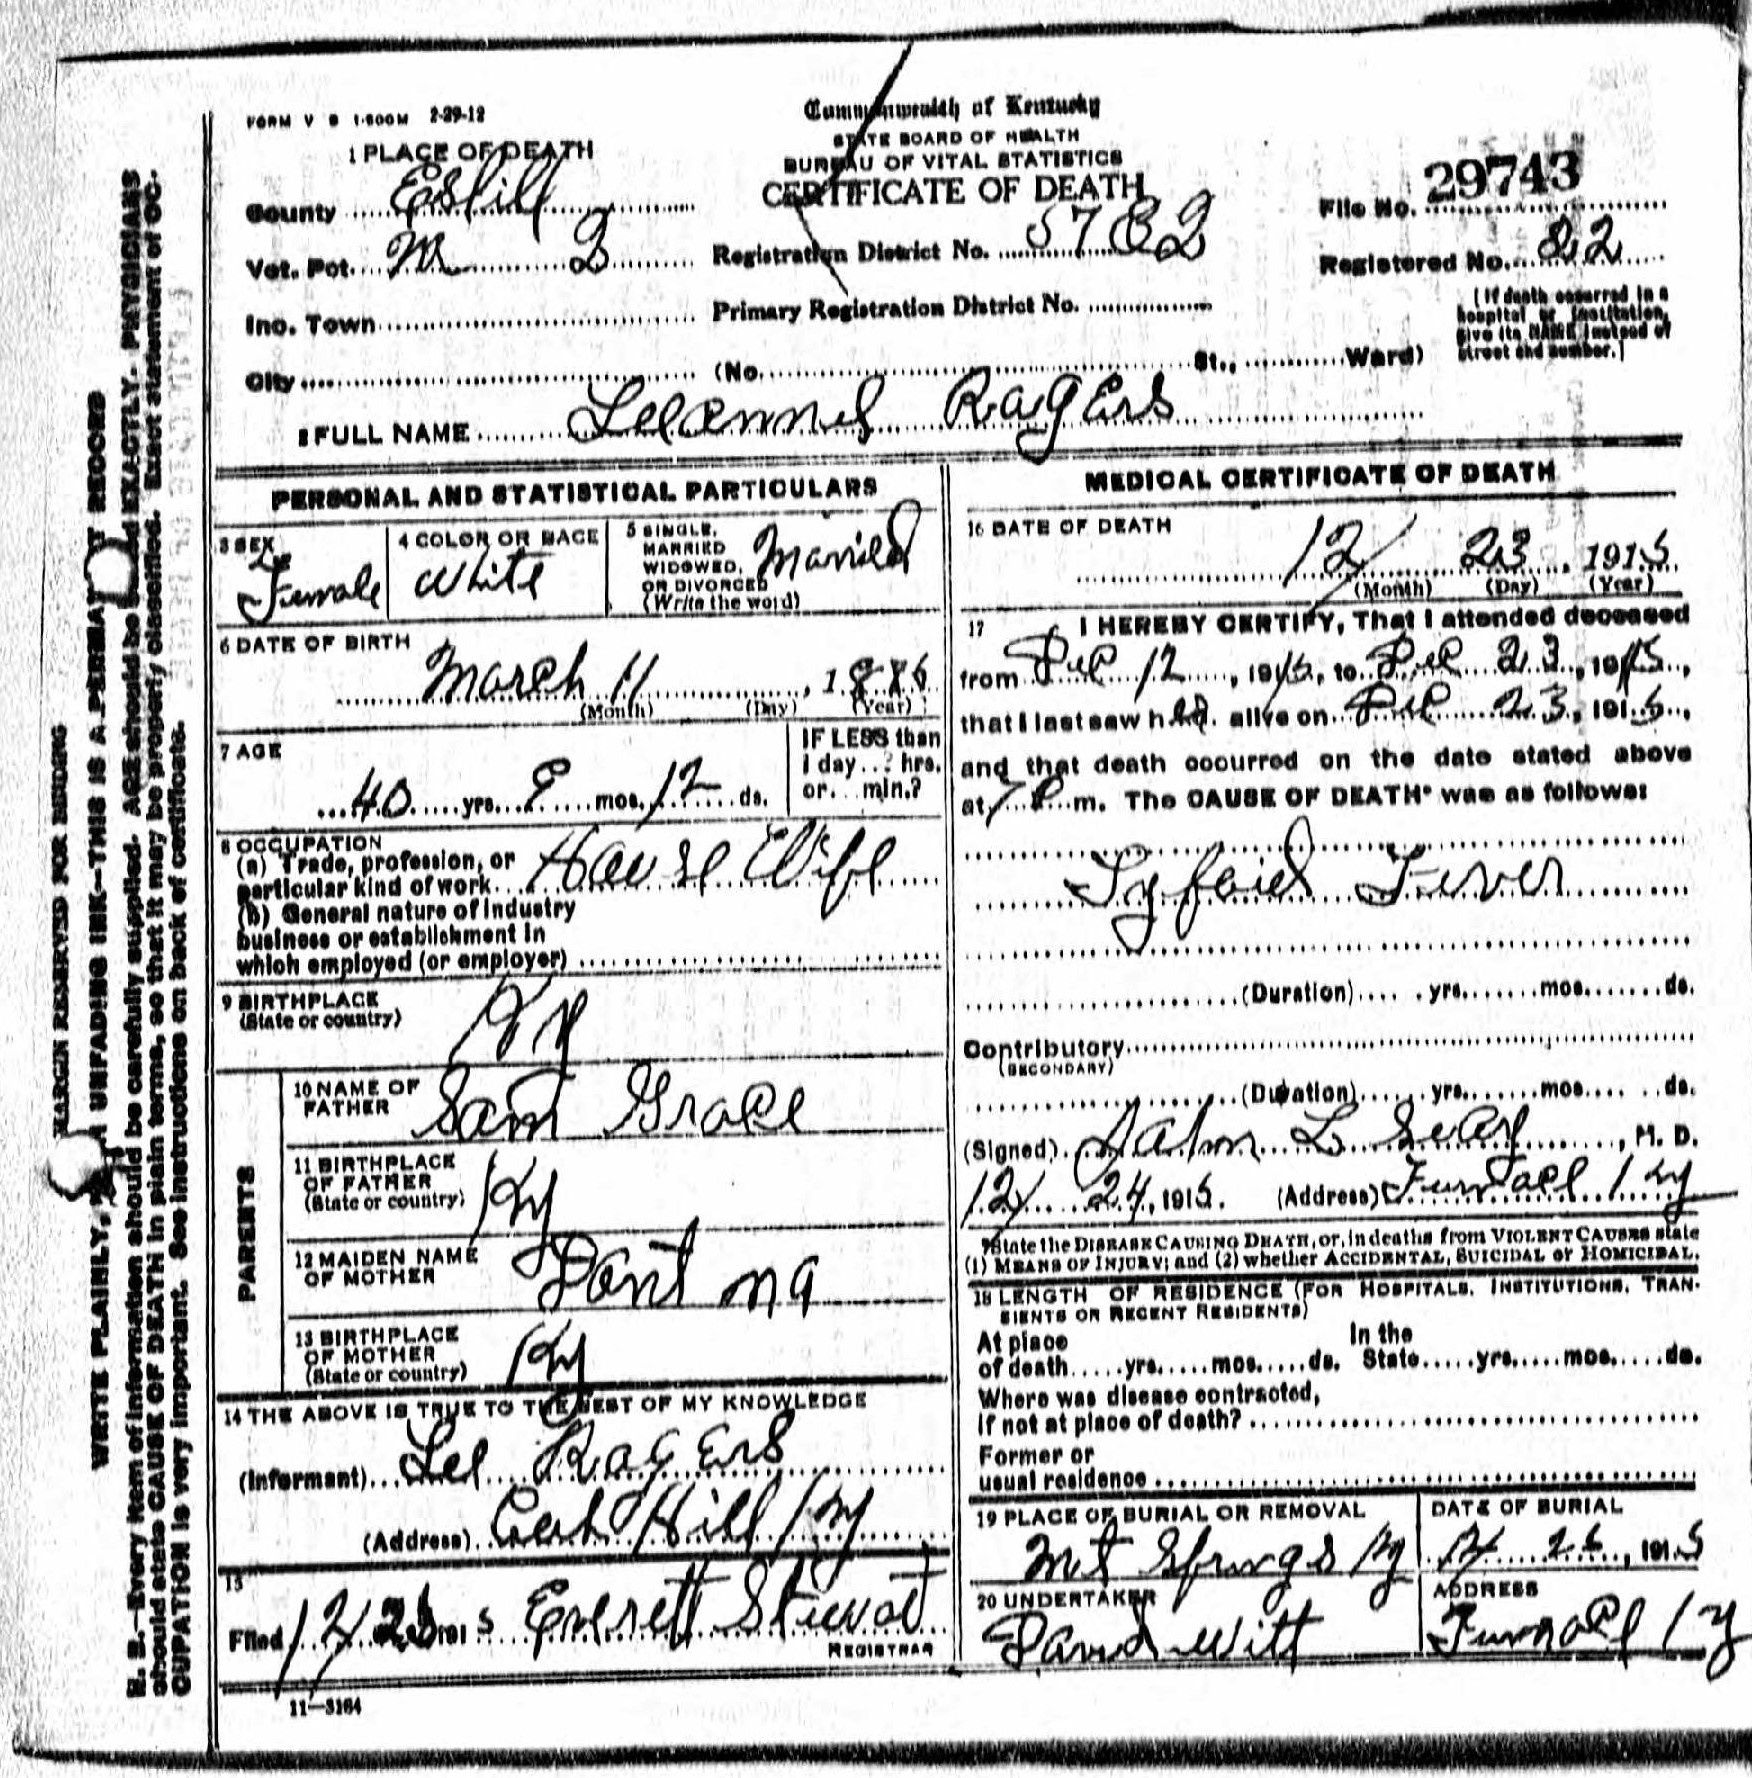 FORM V S 1-500M 2-29-12
Commonwealth of Kentucky
STATE BOARD OF HEALTH
BUREAU OF VITAL STATISTICS
CERTIFICATE OF DEATH
1 PLACE OF DEATH
County Estill
Vot. Pct. 2
Inc. Town
City
Registration District No. 5782
Primary Registration District No.
(No. St., Ward)
File No. 29743
Registered No. 82
(If death occurred in a
hospital or institution,
give its NAME instead of
street and number.)
2 FULL NAME Ragers
PERSONAL AND STATISTICAL PARTICULARS
3 SEX
Female
4 COLOR OR RACE
White
5 SINGLE,
MARRIED
WIDOWED,
OR DIVORCED
(Write the word)
Married
6 DATE OF BIRTH
March 11, 18
(Month) (Day) (Year)
7 AGE
40 yrs. 9 mos. 12 ds.
IF LESS than
1 day..? hrs.
or...min.?
8 OCCUPATION
(a) Trade, profession, or
particular kind of work House Wife
(b) General nature of industry
business or establishment in
which employed (or employer)
9 BIRTHPLACE
(State or country)
Ky
PARENTS
10 NAME OF
FATHER
Sam Grace
11 BIRTHPLACE
OF FATHER
(State or country)
Ky
12 MAIDEN NAME
OF MOTHER
Dont no
13 BIRTHPLACE
OF MOTHER
(State or country)
Ky
14 THE ABOVE IS TRUE TO THE BEST OF MY KNOWLEDGE
(Informant) Lee Ragers
(Address) Hill Ky
15
Filed 12 1915 Everett
REGISTRAR
11—3164
MEDICAL CERTIFICATE OF DEATH
16 DATE OF DEATH
12 23, 1915
(Month) (Day) (Year)
17 I HEREBY CERTIFY, That I attended deceased
from Dec 12, 1915, to Dec 23, 1915,
that I last saw h alive on Dec 23, 1915,
and that death occurred on the date stated above
at 7 P m. The CAUSE OF DEATH* was as follows:
Tyfoid Fever
(Duration) yrs. mos. ds.
Contributory
(SECONDARY)
(Duration) yrs. mos. ds.
(Signed) L , M. D.
12 24, 1915. (Address) Furnace Ky
*State the DISEASE CAUSING DEATH, or, in deaths from VIOLENT CAUSES state
(1) MEANS OF INJURY; and (2) whether ACCIDENTAL, SUICIDAL or HOMICIDAL.
18 LENGTH OF RESIDENCE (FOR HOSPITALS, INSTITUTIONS, TRAN-
SIENTS OR RECENT RESIDENTS)
At place In the
of death yrs. mos. ds. State yrs. mos. ds.
Where was disease contracted,
if not at place of death?
Former or
usual residence
19 PLACE OF BURIAL OR REMOVAL
Mt Springs Ky
DATE OF BURIAL
12 , 1915
20 UNDERTAKER
David Witt
ADDRESS
Furnace Ky
MARGIN RESERVED FOR BINDING
WRITE PLAINLY, UNFADING INK—THIS IS A PERMANENT RECORD
N. B.—Every item of information should be carefully supplied. AGE should be EXACTLY. PHYSICIANS
should state CAUSE OF DEATH in plain terms, so that it may be properly classified. Exact statement of OC-
CUPATION is very important. See instructions on back of certificate.